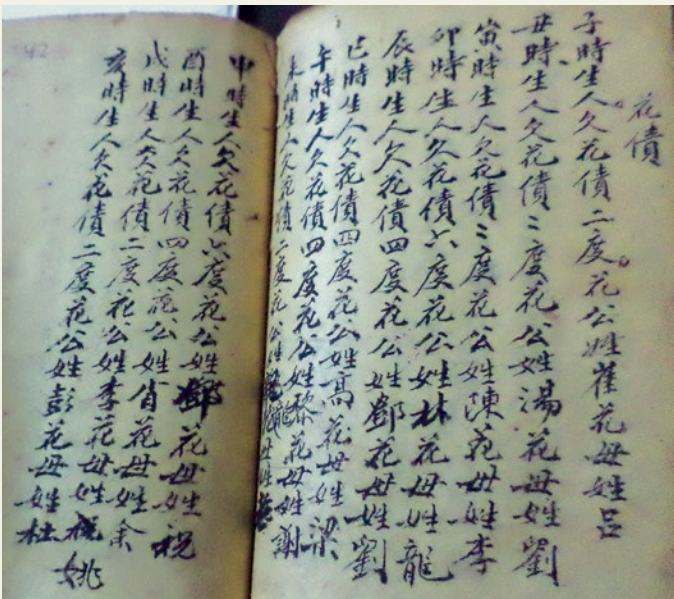 花債
子時生人欠花債二度花公姓崔花母姓呂
丑時生人欠花債三度花公姓湯花母姓劉
寅時生人欠花債三度花公姓陳花母姓李
卯時生人欠花債六度花公姓林花母姓龍
辰時生人欠花債四度花公姓鄧花母姓劉
巳時生人欠花債四度花公姓高花母姓梁
午時生人欠花債四度花公姓黎花母姓謝
未時生人欠花債二度花公姓龍花母姓
申時生人欠花債六度花公姓鄧花母姓祝
酉時生人欠花債四度花公姓肖花母姓余
戌時生人欠花債二度花公姓李花母姓姚
亥時生人欠花債二度花公姓彭花母姓杜